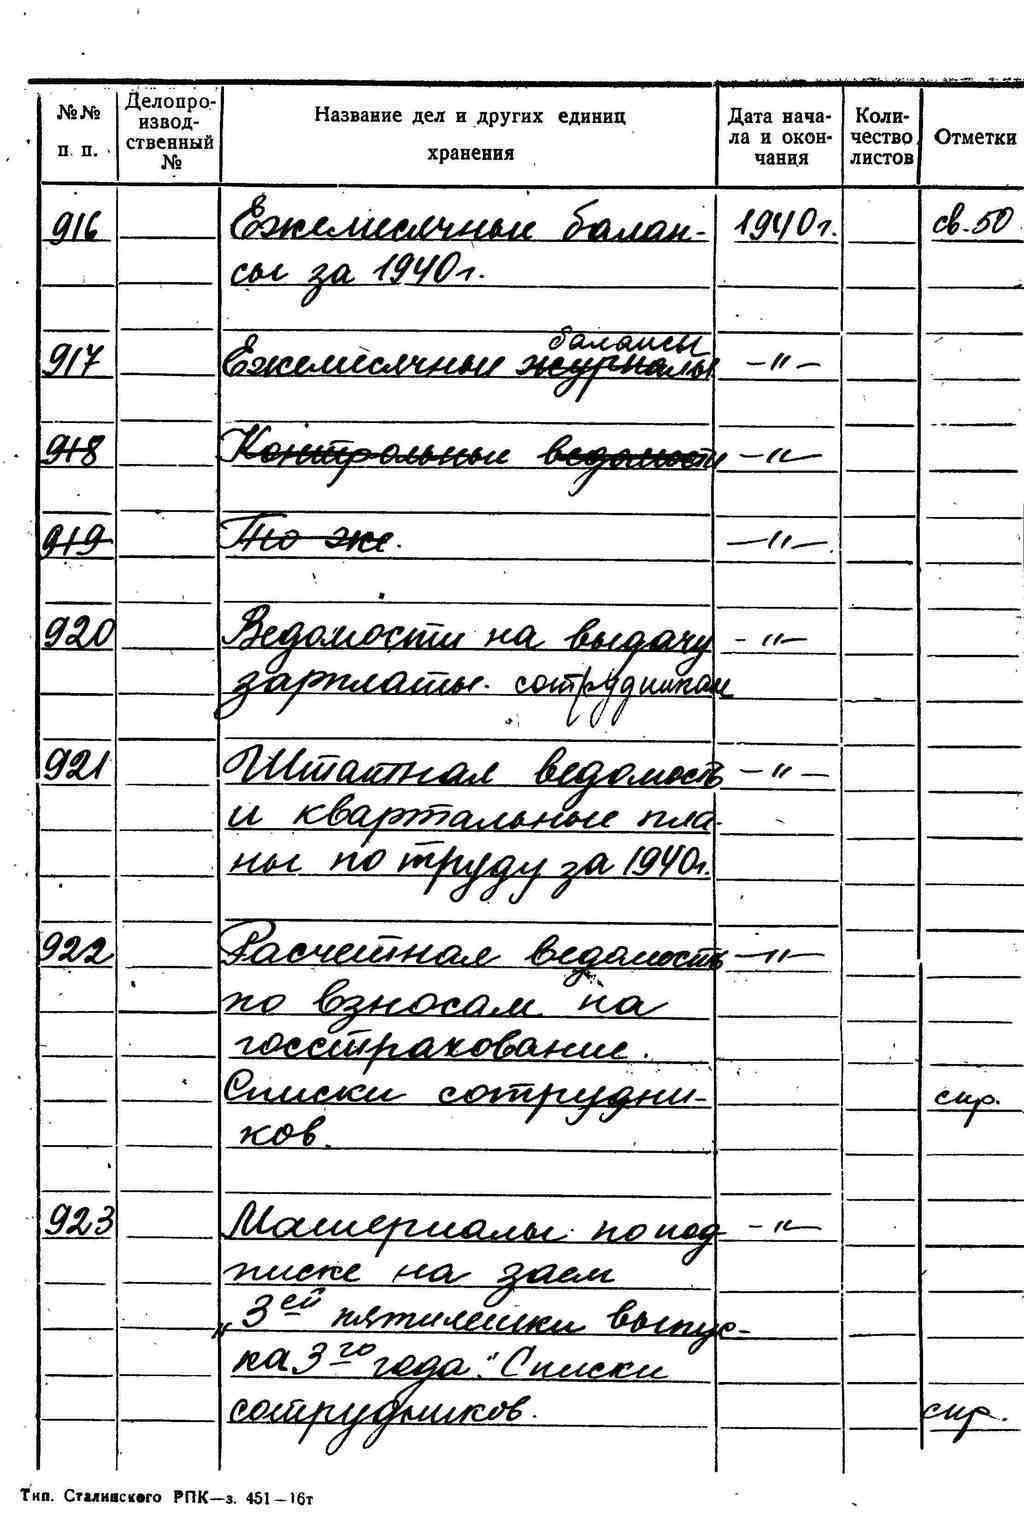 №№ п. п. Делопро-извод-ственный № Название дел и других единиц хранения Дата нача-ла и окон-чания Коли-чество листов Отметки
916 Ежемесячные балан- 1940 г. св. 50
сы за 1940 г.
балансы
917 Ежемесячные журналы —"—
918 Контрольные ведомости —"—
919 То же. —"—
920 Ведомости на выдачу —"—
зарплаты сотрудникам
921 Штатная ведомость —"—
и квартальные пла-
ны по труду за 1940 г.
922 Расчетная ведомость —"—
по взносам на
госстрахование.
Списки сотрудни- спр.
ков.
923 Материалы по под —"—
писке на заем
„3ей пятилетки выпус-
ка 3го года". Списки
сотрудников. спр.
Тип. Сталинского РПК—з. 451—16т